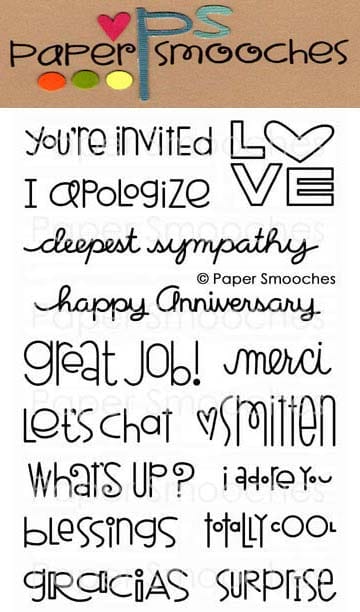 PS
paper smooches
you're invited
LOVE
I apologize
deepest sympathy
© Paper Smooches
happy Anniversary
great job!
merci
Let's chat
smitten
What's UP?
i adore you
blessings
totally cool
gracias
surprise